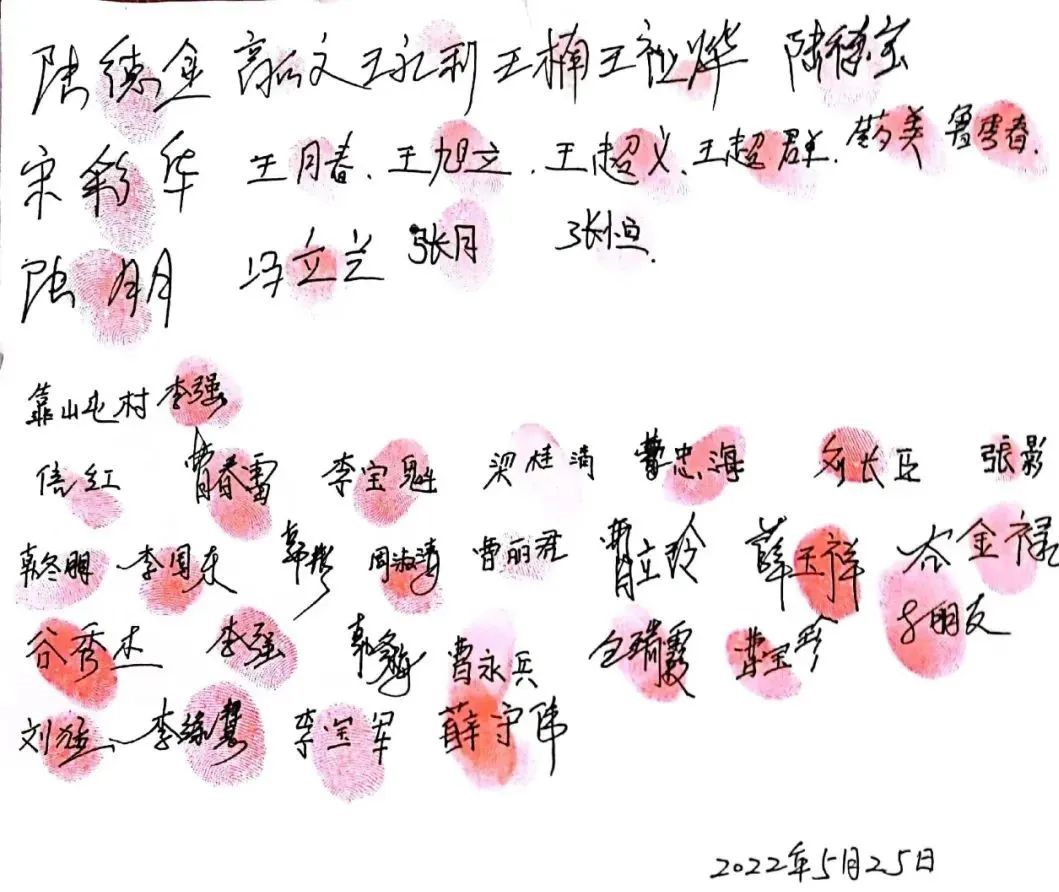 陆德金 王永利 王楠 王祉烨 陆穆宝
宋彩华 王月春. 王旭立. 王超义. 王超群. 美 鲁雪春.
陆明 冯立兰 张月 张恒.
靠山屯村 李强
信红 曹春雷 李宝魁 梁桂满 曹忠海 刘长臣 张影
郭冬明 李国东 郭彬 周淑清 曹丽君 曹立玲 薛玉祥 谷金禄
谷秀杰 李强 曹永兵 仝瑞霞 曹宝珍 于朋友
刘猛 李综慧 李宝军 薛守伟
2022年5月25日